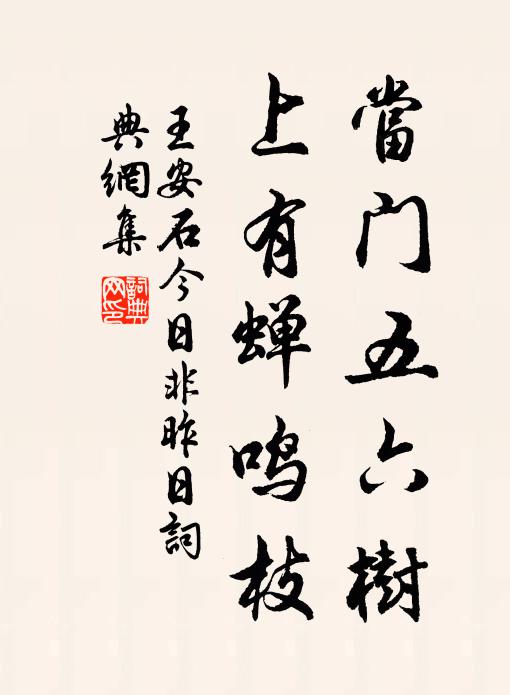 當门五六樹
上有蝉鸣枝
王安石今日非昨日詞
典網集
詞典
网印